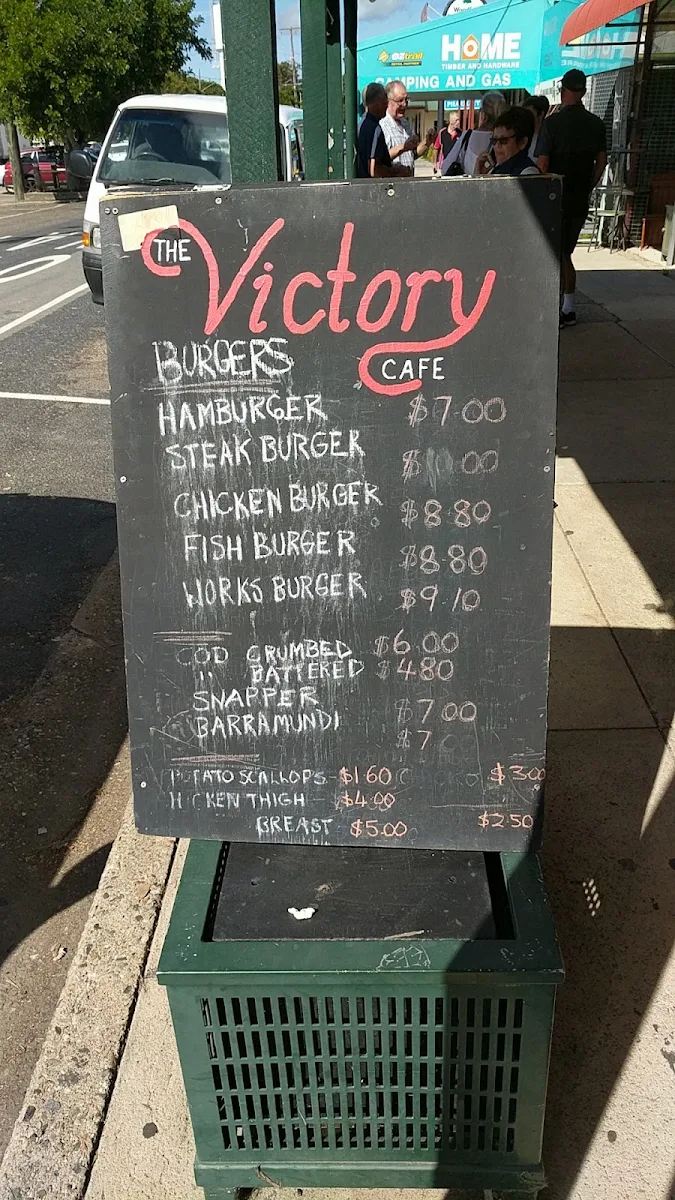 OZtrail
HOME
TIMBER AND HARDWARE
CAMPING AND GAS
THE
Victory
CAFE
BURGERS
HAMBURGER $7.00
STEAK BURGER $10.00
CHICKEN BURGER $8.80
FISH BURGER $8.80
WORKS BURGER $9.10
COD CRUMBED $6.00
" BATTERED $4.80
SNAPPER $7.00
BARRAMUNDI $7
POTATO SCALLOPS $1.60 $3.00
HICKEN THIGH - $4.00
BREAST $5.00 $2.50